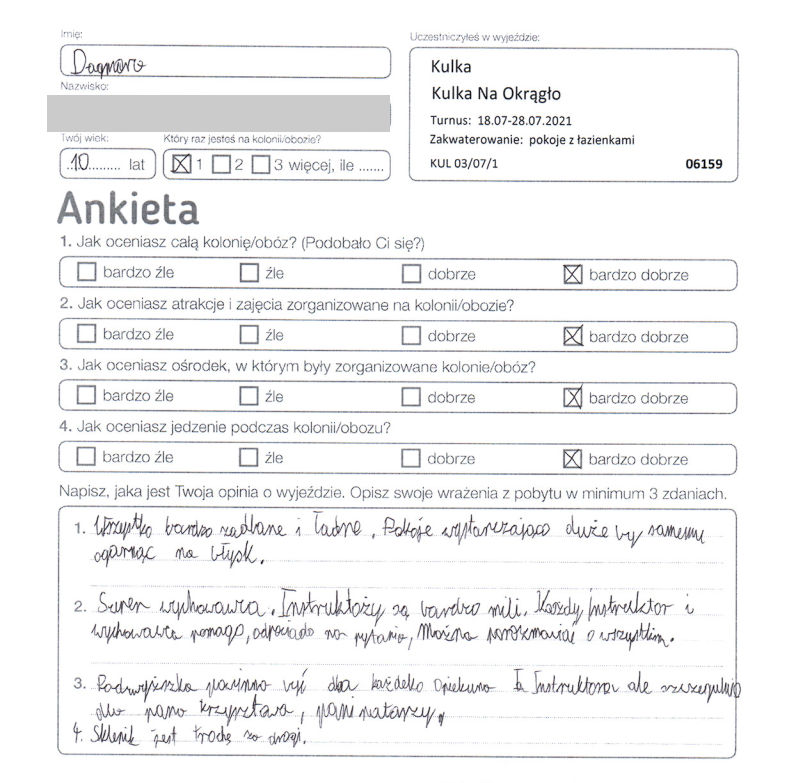 Imię:
Dagmara
Uczestniczyłeś w wyjeździe:
Nazwisko:
Kulka
Kulka Na Okrągło
Turnus: 18.07-28.07.2021
Zakwaterowanie: pokoje z łazienkami
KUL 03/07/1 06159
Twój wiek: Który raz jesteś na kolonii/obozie?
10 lat 1 2 3 więcej, ile .......
Ankieta
1. Jak oceniasz całą kolonię/obóz? (Podobało Ci się?)
bardzo źle źle dobrze bardzo dobrze
2. Jak oceniasz atrakcje i zajęcia zorganizowane na kolonii/obozie?
bardzo źle źle dobrze bardzo dobrze
3. Jak oceniasz ośrodek, w którym były zorganizowane kolonie/obóz?
bardzo źle źle dobrze bardzo dobrze
4. Jak oceniasz jedzenie podczas kolonii/obozu?
bardzo źle źle dobrze bardzo dobrze
Napisz, jaka jest Twoja opinia o wyjeździe. Opisz swoje wrażenia z pobytu w minimum 3 zdaniach.
1. Wszystko bardzo zadbane i ładne. Pokoje wystarczająco duże by samemu
ogarnąć na błysk.
2. Super wychowawca. Instruktoży są bardzo mili. Każdy instruktor i
wychowawca pomaga, odpowiada na pytania, Można porozmawiać o wszystkim.
3. Podwyszka powinna być dla każdego opiekuna Instruktora ale szczegulnie
dla pana krzysztava, pani natarzy.
4. Sklepik jest trochę za drogi.